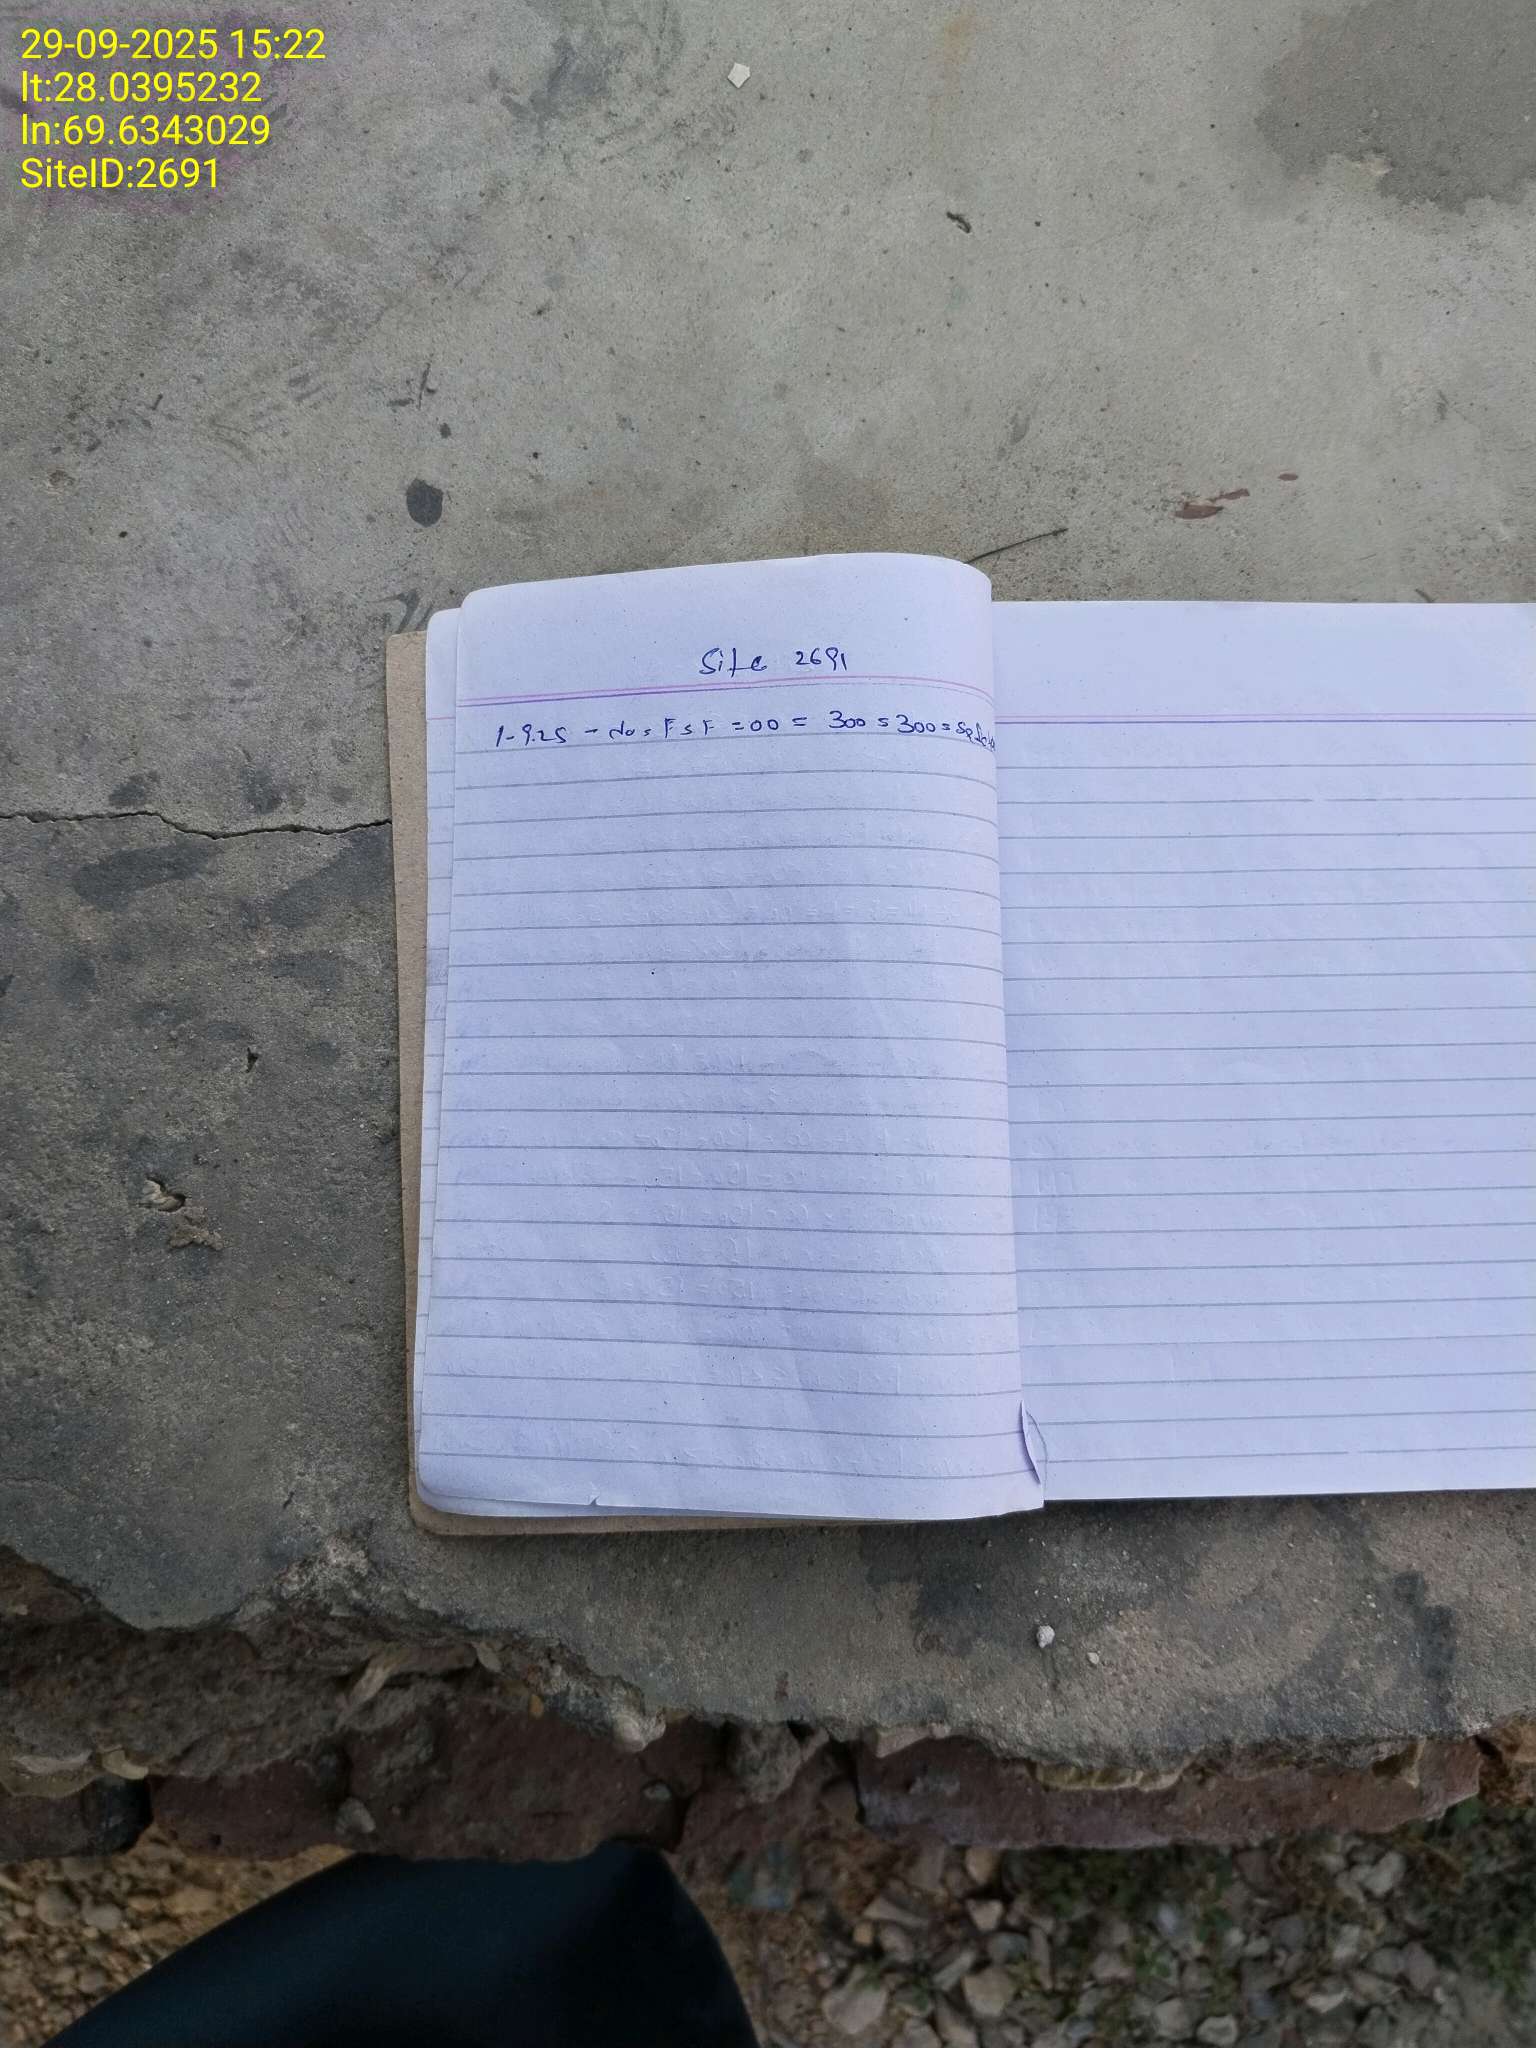 29-09-2025 15:22
lt:28.0395232
ln:69.6343029
SiteID:2691
Site 2691
1-9.25 - No = F S F = 00 = 300 = 300 =